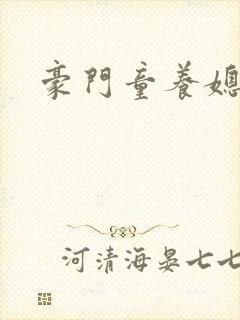 豪門童養媳
河清海晏七七